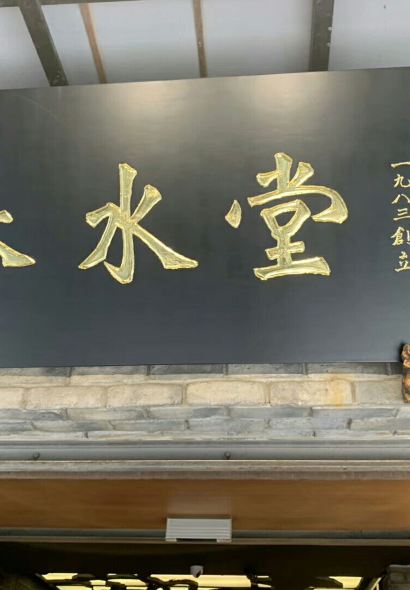 水堂
一九八三創立